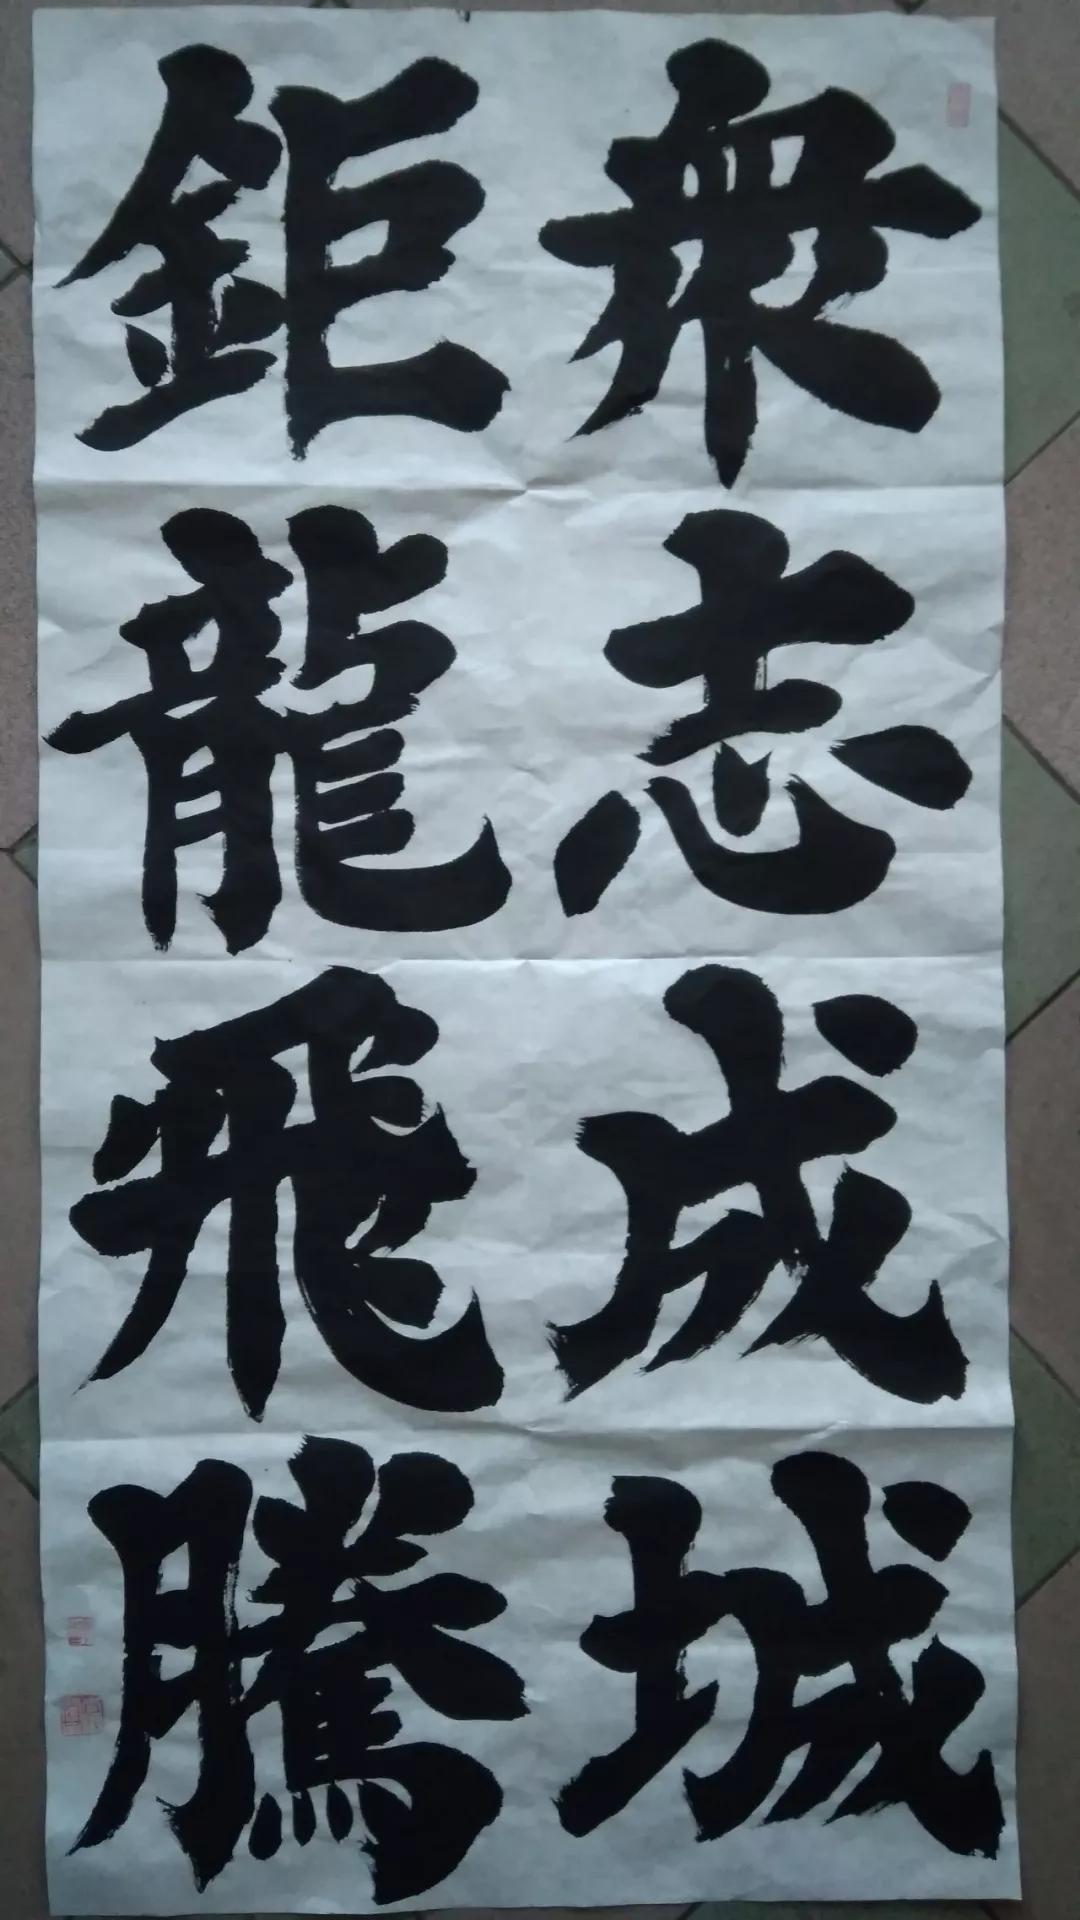 衆志成城
鉅龍飛騰